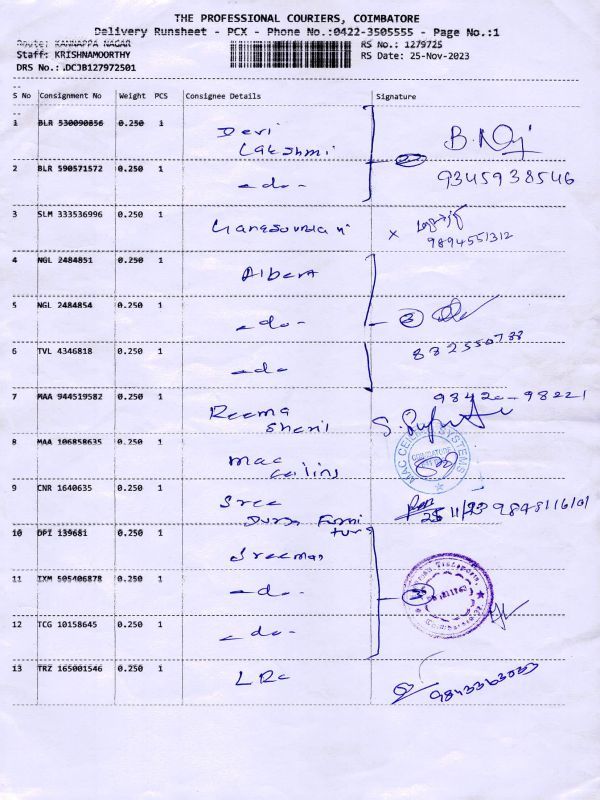 THE PROFESSIONAL COURIERS, COIMBATORE
Delivery Runsheet - PCX - Phone No.:0422-3505555 - Page No.:1
Route: KANNAPPA NAGAR
RS No.: 1279725
Staff: KRISHNAMOORTHY
RS Date: 25-Nov-2023
DRS No.: DCJB127972501
S No Consignment No Weight PCS Consignee Details Signature
1 BLR 530090856 0.250 1 Devi Lakshmi
2 BLR 590571572 0.250 1 - do - 9345938546
3 SLM 333536996 0.250 1 x 9894551312
4 NGL 2484851 0.250 1 Albert
5 NGL 2484854 0.250 1 - do - 3
6 TVL 4346818 0.250 1 - do -
7 MAA 944519582 0.250 1 Reema 98420-98221
8 MAA 106858635 0.250 1 Mac Ceilins MAC CEILING SYSTEMS COIMBATORE
9 CNR 1640635 0.250 1 Sree Durga Furniture 25/11/23
10 DPI 139681 0.250 1 Sreeman
11 IXM 505406878 0.250 1 - do -
12 TCG 10158645 0.250 1 - do -
13 TRZ 165001546 0.250 1 LRC